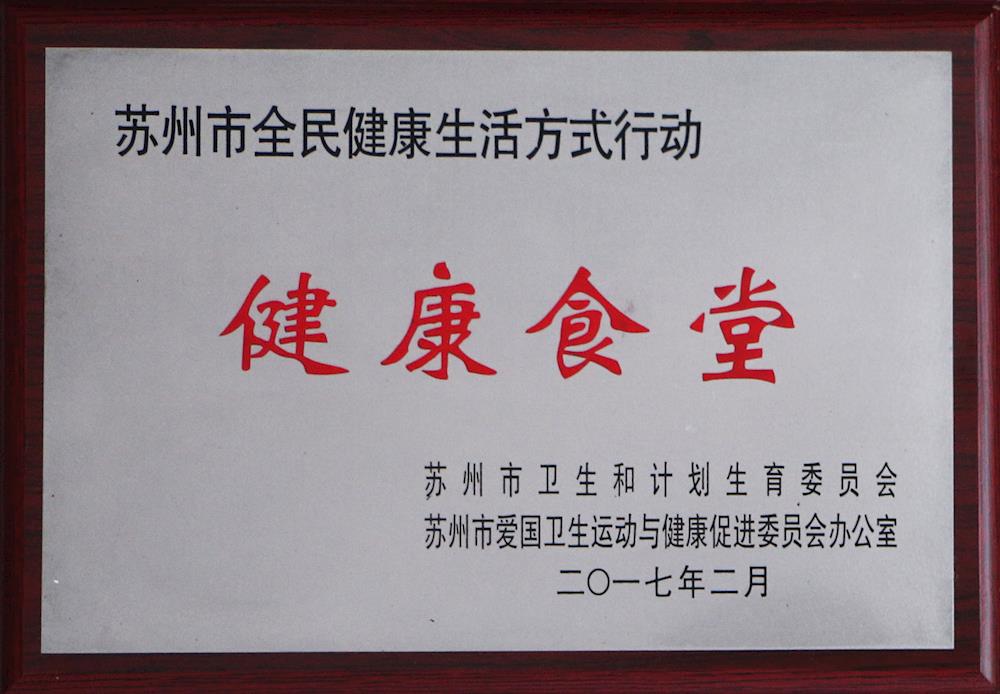 苏州市全民健康生活方式行动
健康食堂
苏州市卫生和计划生育委员会
苏州市爱国卫生运动与健康促进委员会办公室
二〇一七年二月